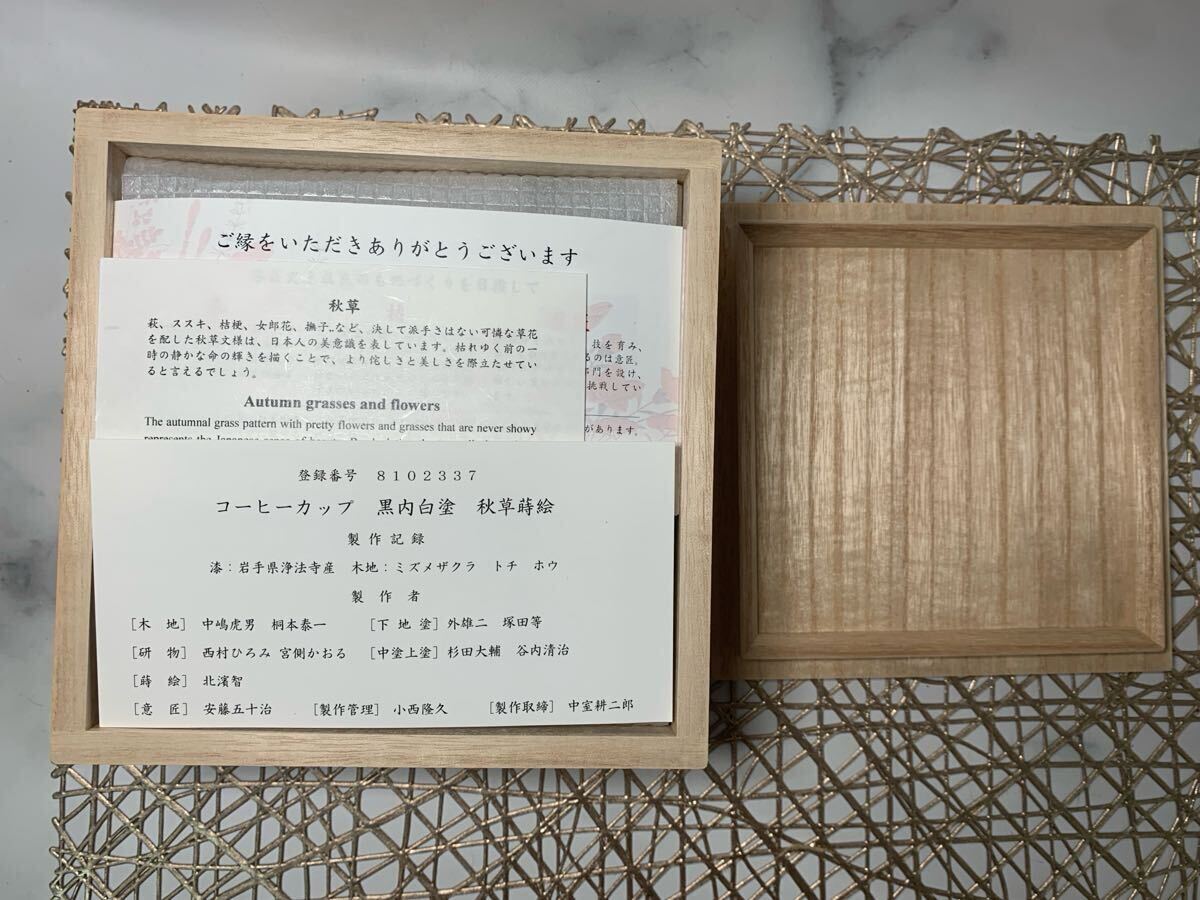 ご縁をいただきありがとうございます
秋草
萩、ススキ、桔梗、女郎花、撫子‥など、決して派手さはない可憐な草花
を配した秋草文様は、日本人の美意識を表しています。枯れゆく前の一
時の静かな命の輝きを描くことで、より侘しさと美しさを際立たせてい
ると言えるでしょう。
Autumn grasses and flowers
The autumnal grass pattern with pretty flowers and grasses that are never showy
技を育み、
るのは意匠。
門を設け、
挑戦してい
があります。
登録番号 8102337
コーヒーカップ 黒内白塗 秋草蒔絵
製作記録
漆：岩手県浄法寺産 木地：ミズメザクラ トチ ホウ
製作者
［木 地］ 中嶋虎男 桐本泰一 ［下 地 塗］外雄二 塚田等
［研 物］ 西村ひろみ 宮側かおる ［中塗上塗］杉田大輔 谷内清治
［蒔 絵］ 北濱智
［意 匠］ 安藤五十治 ［製作管理］ 小西隆久 ［製作取締］ 中室耕二郎